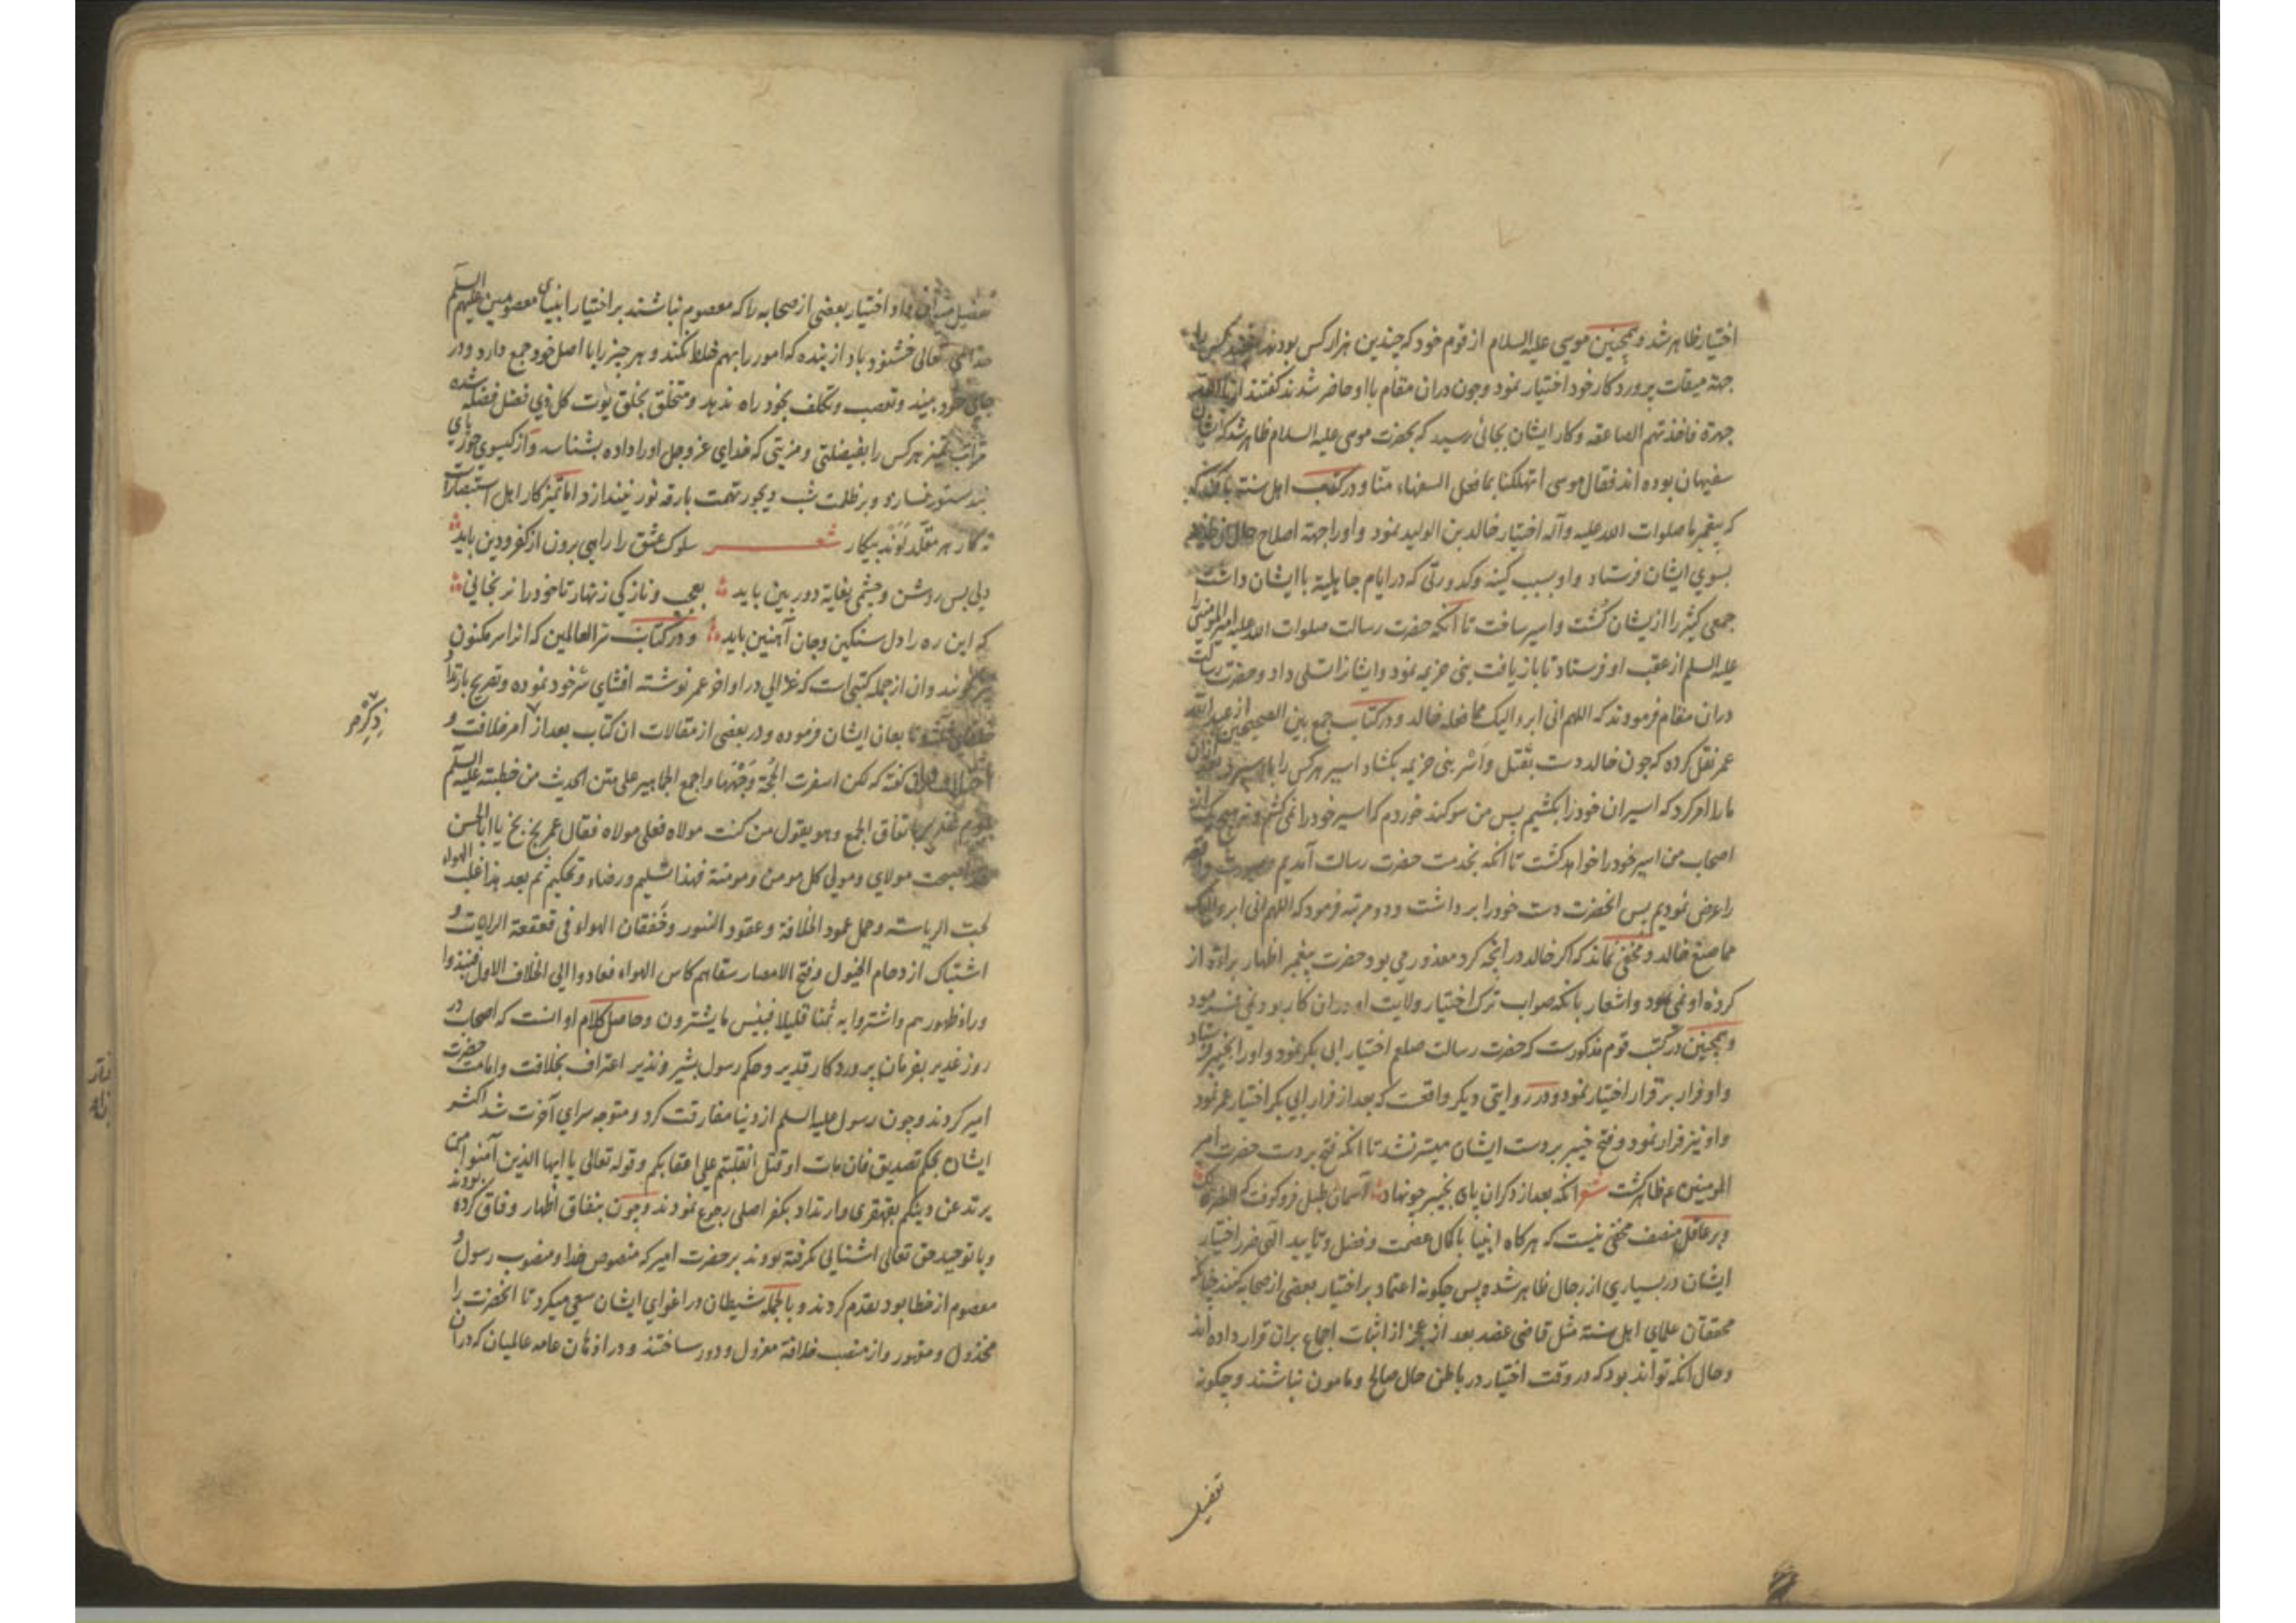 اختیار ظاهر شد و همچنین موسی علیه السلام از قوم خود که چندین هزار کس بودند
جهة میقات پروردکار خود اختیار نمود وچون دران مقام با او حاضر شدند کفتند ارنا الله
جهرة فاخذتهم الصاعقه وکار ایشان بجائی رسید که بحضرت موسی علیه السلام ظاهر شد که ایشان
سفیهان بوده اند فقال موسی اتهلکنا بما فعل السفهاء منّا ودر کتب اهل سنت
که پیغمبر ما صلوات الله علیه وآله اختیار خالد بن الولید نمود و او را جهة اصلاح حال
بسوی ایشان فرستاد و او بسبب کینه وکدورتی که در ایام جاهلیة با ایشان داشت
جمعی کثیر را از یشان کُشت واسیر ساخت تا آنکه حضرت رسالت صلوات الله علیه امیرالمومنین را
علیه السلم از عقب او فرستاد تا باز یافت بنی خزیمه نمود وایشانرا تسلی داد وحضرت رسالت
دران مقام فرمودند که اللهم انی ابرو الیک مما فعله خالد ودر کتاب جمع بین الصحیحین از عبد الله
عمر نقل کرده که چون خالد دست بقتل واَسْر بنی خزیمه بکشاد اسیر هر کس را باو سپرد بعد ازان
ما را امر کرد که اسیران خود را بکشیم پس من سوکند خوردم که اسیر خود را نمی کشم و نه هیچ یک از
اصحاب من اسیر خود را خواهد کشت تا آنکه بخدمت حضرت رسالت آمدیم
را عرض نمودیم پس انحضرت دست خود را برداشت ودو مرتبه فرمود که اللهم انی ابرو الیک
مما صنع خالد ومخفی نماند که اکر خالد در انچه کرد معذور می بود حضرت پیغمبر اظهار براءة از
کرده او نمی نمود واشعار بانکه صواب ترک اختیار ولایت او دران کار بود نمی فرمود
وهمچنین در کتب قوم مذکورست که حضرت رسالت صلعم اختیار ابی بکر نمود و او را بخیبر فرستاد
و او فرار بر قرار اختیار نمود ودر روایتی دیکر واقعست که بعد از فرار ابی بکر اختیار عمر نمود
و او نیز فرار نمود وفتح خیبر بر دست ایشان میسّر نشد تا انکه فتح بر دست حضرت امیر
المومنین ع ظاهر کشت شعر انکه بعد از دکران پای بخیبر چو نهاد آسمان طبل فرو کوفت که
وبر عاقل منصف مخفی نیست که هرکاه انبیا با کمال عصمت وفضل وتایید الهی ضرر اختیار
ایشان در بسیاری از رجال ظاهر شده پس چکونه اعتماد بر اختیار بعضی از صحابه کنند چنانکه
محققان علمای اهل سنة مثل قاضی عضد بعد از عجز از اثبات اجماع بران قرار داده اند
وحال انکه تواند بود که در وقت اختیار در باطن حال صالح ومامون نباشند وچکونه
تفضیل
تفضیل میتوان داد اختیار بعضی از صحابه را که معصوم نباشند بر اختیار انبیای معصومین علیهم السلم
خدای تعالی خشنود باد از بنده که امور را بهم خلط نکند وهر چیز را با اصل خود جمع دارد ودر
جای خود بیند وتعصب وتکلف بخود راه ندهد ومتخلق بخلق یؤت کل ذی فضل فضله شده
تمیز هر کس را بفضیلتی ومزیتی که خدای عز وجل او را داده بشناسد واز کیسوی حور
وبر ظلمت شب دیجور تهمت بارقه نور نیندازد اما تمیز کار اهل استبصار است
نه کار هر مقلّد لَوَند بیکار شعر سلوک عشق را راهی برون از کفر ودین باید
دلی بس روشن وچشمی بغایة دور بین باید بعجب وناز کی زنهار تا خود را نرنجانی
که این ره را دل سنکین وجان آهنین باید ودر کتاب سرّ العالمین که انرا سرّ مکنون
نیز کویند وان از جمله کتبی است که غزالی در اواخر عمر نوشته افشای سرّ خود نموده وتصریح بارتداد
خلفای ثلثه وتابعان ایشان فرموده ودر بعضی از مقالات ان کتاب بعد از امر خلافت و
ذکر
کفته که لکن اسفرت الحُجّة وَجْهَهَا واجمع الجماهیر علی متن الحدیث من خطبته علیه السلم
یوم غدیر باتفاق الجمیع وهو یقول من کنت مولاه فعلی مولاه فقال عمر بخ بخ یا ابا الحسن
لقد اصبحت مولای ومولی کل مومن ومومنة فهذا تسلیم ورضاء وتحکیم ثم بعد هذا غلب الهواء
لحبّ الریاسة وحمل عمود الخلافة وعقود البنود وخَفَقان الهواء فی قعقعة الرایات و
اشتباک ازدحام الخیول وفتح الامصار سقاهم کاس الهواء فعادوا الی الخلاف الاول فنبذوا
وراء ظهورهم واشتروا به ثمنا قلیلا فبئس ما یشترون وحاصل کلام او انست که اصحاب در
روز غدیر بفرمان پروردکار قدیر وحکم رسول بشیر ونذیر اعتراف بخلافت وامامت حضرت
امیر کردند وچون رسول علیه السلم از دنیا مفارقت کرد ومتوجه سرای آخرت شد اکثر
ایشان بحکم تصدیق فان مات او قتل انقلبتم علی اعقابکم وقوله تعالی یا ایها الذین آمنوا من
یرتد عن دینکم بقهقری وارتداد بکفر اصلی رجوع نمودند وچون بنفاق اظهار وفاق کرده بودند
وبا توحید حق تعالی اشنایی نکرفته بودند بر حضرت امیر که منصوص خدا ومنصوب رسول و
معصوم از خطا بود تقدم کردند وبالجمله شیطان در اغوای ایشان سعی میکرد تا انحضرت را
مخذول ومقهور واز منصب خلافة معزول ودور ساختند ودر اذهان عامه عالمیان که دران